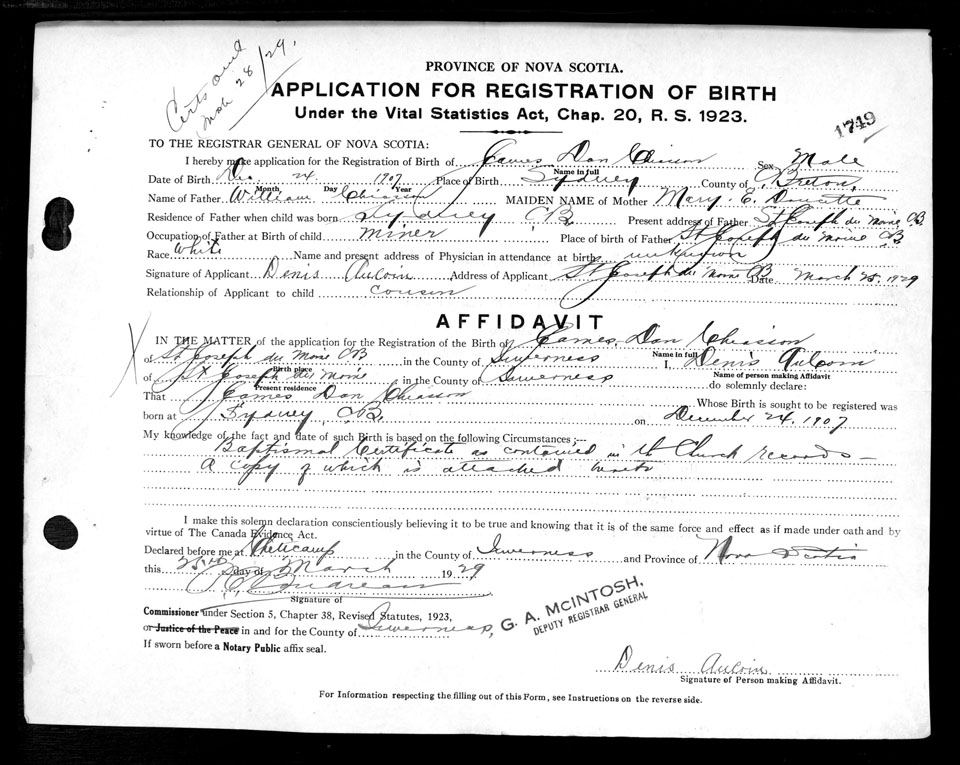 Certs out
Mch 28/29.
PROVINCE OF NOVA SCOTIA.
APPLICATION FOR REGISTRATION OF BIRTH
Under the Vital Statistics Act, Chap. 20, R. S. 1923.
1749
TO THE REGISTRAR GENERAL OF NOVA SCOTIA:
I hereby make application for the Registration of Birth of James Dan Sex Male
Name in full
Date of Birth Dec. 24 1907 Place of Birth Sydney County of C. Breton
Month Day Year
Name of Father William Chiasson MAIDEN NAME of Mother Mary C. Doucette
Residence of Father when child was born Sydney CB Present address of Father St Joseph du Moine CB
Occupation of Father at Birth of child miner Place of birth of Father St Joseph du Moine CB
Race White Name and present address of Physician in attendance at birth unknown
Signature of Applicant Denis Aucoin Address of Applicant St Joseph du Moine CB Date March 25, 1929
Relationship of Applicant to child cousin
AFFIDAVIT
IN THE MATTER of the application for the Registration of the Birth of James Dan Chiasson
Name in full
of St Joseph du Moine CB in the County of Inverness I, Denis Aucoin
Birth place Name of person making Affidavit
of St Joseph du Moine in the County of Inverness do solemnly declare:
Present residence
That James Dan Chiasson Whose Birth is sought to be registered was
born at Sydney CB on December 24, 1907
My knowledge of the fact and date of such Birth is based on the following Circumstances;—
Baptismal Certificate as contained in th Church records —
A copy of which is attached hereto
I make this solemn declaration conscientiously believing it to be true and knowing that it is of the same force and effect as if made under oath and by
virtue of The Canada Evidence Act.
Declared before me at Cheticamp in the County of Inverness and Province of Nova Scotia
this 25th day of March 1929
Signature of
Commissioner under Section 5, Chapter 38, Revised Statutes, 1923,
or Justice of the Peace in and for the County of Inverness
G. A. McINTOSH,
DEPUTY REGISTRAR GENERAL
If sworn before a Notary Public affix seal.
Denis Aucoin
Signature of Person making Affidavit.
For Information respecting the filling out of this Form, see Instructions on the reverse side.